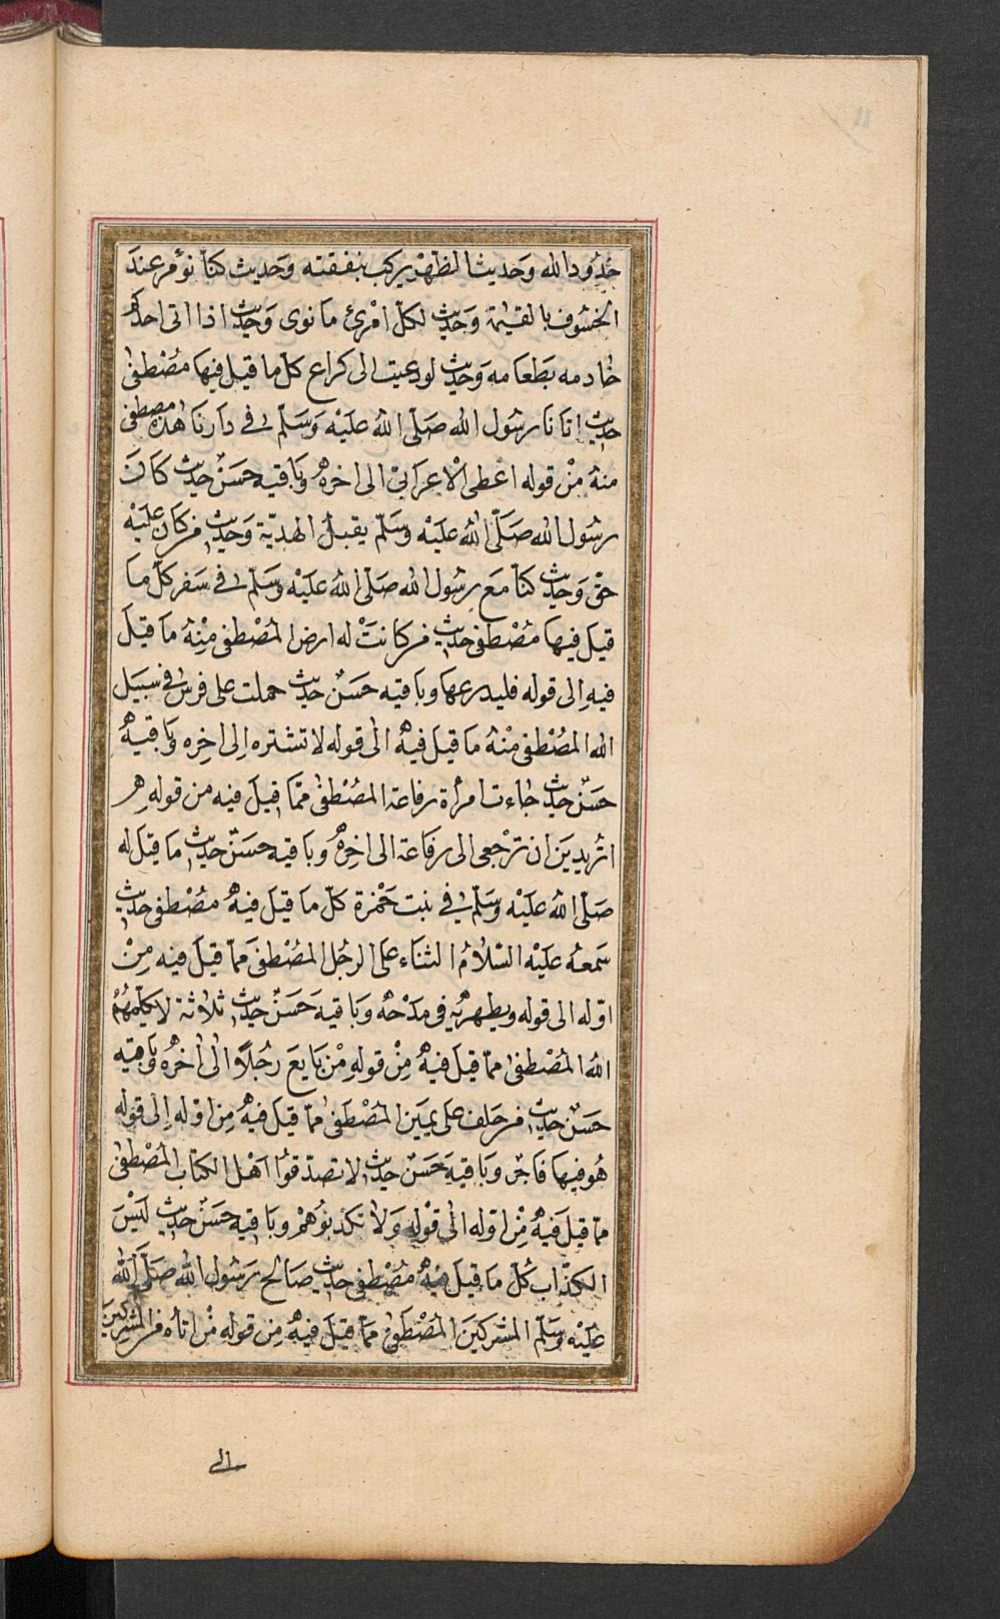 حُدُود الله وَحديث الظهْر يركب بنفقته وَحديث كنّا نؤمر عندَ
الخسُوف بالقيٰمة وَحديث لكل امْرئ مَا نوى وَحديث اذا اتى احدكم
خٰادمه بَطعَامه وَحديث لو دعيت الى كراع كلّ ما قيل فيهَا مصْطفىٰ
حديث اتانا رسُول الله صَلّى اللهُ عليْه وَسَلّم في دارنا هٰذه مصطفى
منهُ مِنْ قوله اعْطى الاعرَابىّ الى اخرهٖ وَبَاقيه حسَنٌ حديث كانَ
رسُول الله صَلّى اللهُ عليْه وسَلّم يقبلُ الهديّة وَحديث من كان عليْه
حقّ وَحديث كنّا مَع رسُول الله صَلّى اللهُ عليْه وسَلّم في سَفر كلّ ما
قيل فيها مصْطفى حديث من كانتْ له ارض المصْطفى مِنْهُ مَا قيلَ
فيه اِلى قوله فليدرعهَا وباقيه حَسَنٌ حديث حملت على فرسٍ في سَبيَل
الله المصْطفى مِنْهُ مَا قيلَ فيهٖ الى قوله لا تشتره اِلى اخِره وَبَاقيهٖ
حسَنٌ حديث جٰاءت امرأة رفاعة المصْطفى ممّا قيلَ فيه من قولهِ
اتريدِيَن ان ترْجعى الى رفَاعة الى اخِرهٖ وبَاقيه حسَنٌ حديث مَا قيل له
صَلّى اللهُ عليْه وَسَلّم في بنت حَمْزة كلّ ما قيلَ فيهٖ مصْطفى حديث
سَمعهُ عليْه السّلامُ الثناء على الرجُل المصْطفى ممّا قيلَ فيه مِنْ
اوّله الى قوله ويطهريْهِ في مدْحهٖ وَبَاقيهَ حَسَنٌ حديث ثلاٰثة لا يكلّمهُمُ
اللهُ المصْطفىٰ ممّا قيلَ فيهٖ مِنْ قولهِ مِنْ بَايعَ رجُلاً الى اٰخرهٖ وبَاقيه
حَسَنٌ حديث من حَلف على يمَين المصْطفىٰ ممّا قيلَ فيهٖ مِن اوّله اِلى قوله
هُو فيها فَاجر وَبَاقيهَ حَسَنٌ حديث لا تصدّقوُا اَهْل الكتٰاب المصْطفىٰ
ممّا قيلَ فيهٖ مِنْ اوّله الى قوْلهٖ وَلا تكذبوُهمْ وبَاقيه حسَنٌ حديث ليْسَ
الكذّاب كلّ مَا قيلَ فيهٖ مصْطفى حديث صَالح رسُول الله صَلّى اللهُ
عليْه وسَلّم المشركينَ المصْطفىٰ ممّا قيلَ فيهٖ مِن قوله مْن اتاه من المشركينَ
الى